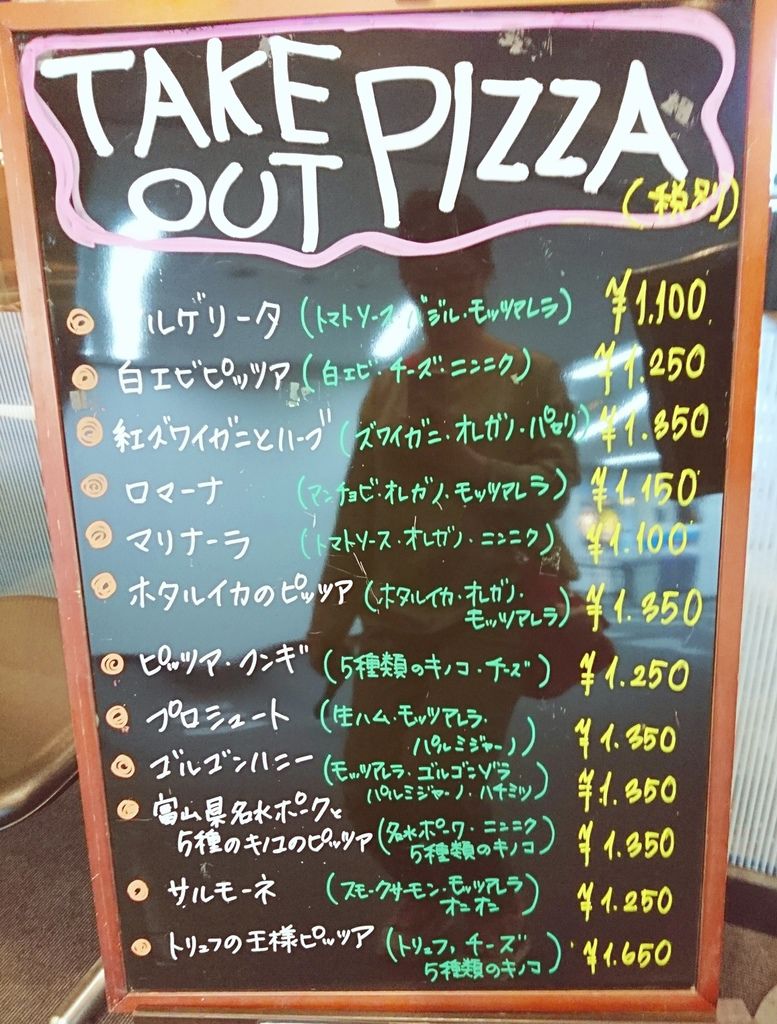 TAKE OUT PIZZA
(税別)
ルゲリータ (トマトソース バジル・モッツアレラ) ¥1.100
白エビピッツア (白エビ・チーズ・ニンニク) ¥1.250
紅ズワイガニとハーブ (ズワイガニ・オレガノ・パセリ) ¥1.350
ロマーナ (アンチョビ・オレガノ・モッツアレラ) ¥1.150
マリナーラ (トマトソース・オレガノ・ニンニク) ¥1.100
ホタルイカのピッツア (ホタルイカ・オレガノ・
モッツアレラ) ¥1.350
ピッツア・フンギ (5種類のキノコ・チーズ) ¥1.250
プロシュート (生ハム・モッツアレラ・
パルミジャーノ) ¥1.350
ゴルゴンハニー (モッツアレラ・ゴルゴンゾラ
パルミジャーノ・ハチミツ) ¥1.350
富山県名水ポークと
5種のキノコのピッツア (名水ポーク・ニンニク
5種類のキノコ) ¥1.350
サルモーネ (スモークサーモン・モッツアレラ
オニオン) ¥1.250
トリュフの王様ピッツア (トリュフ、チーズ
5種類のキノコ) ¥1.650